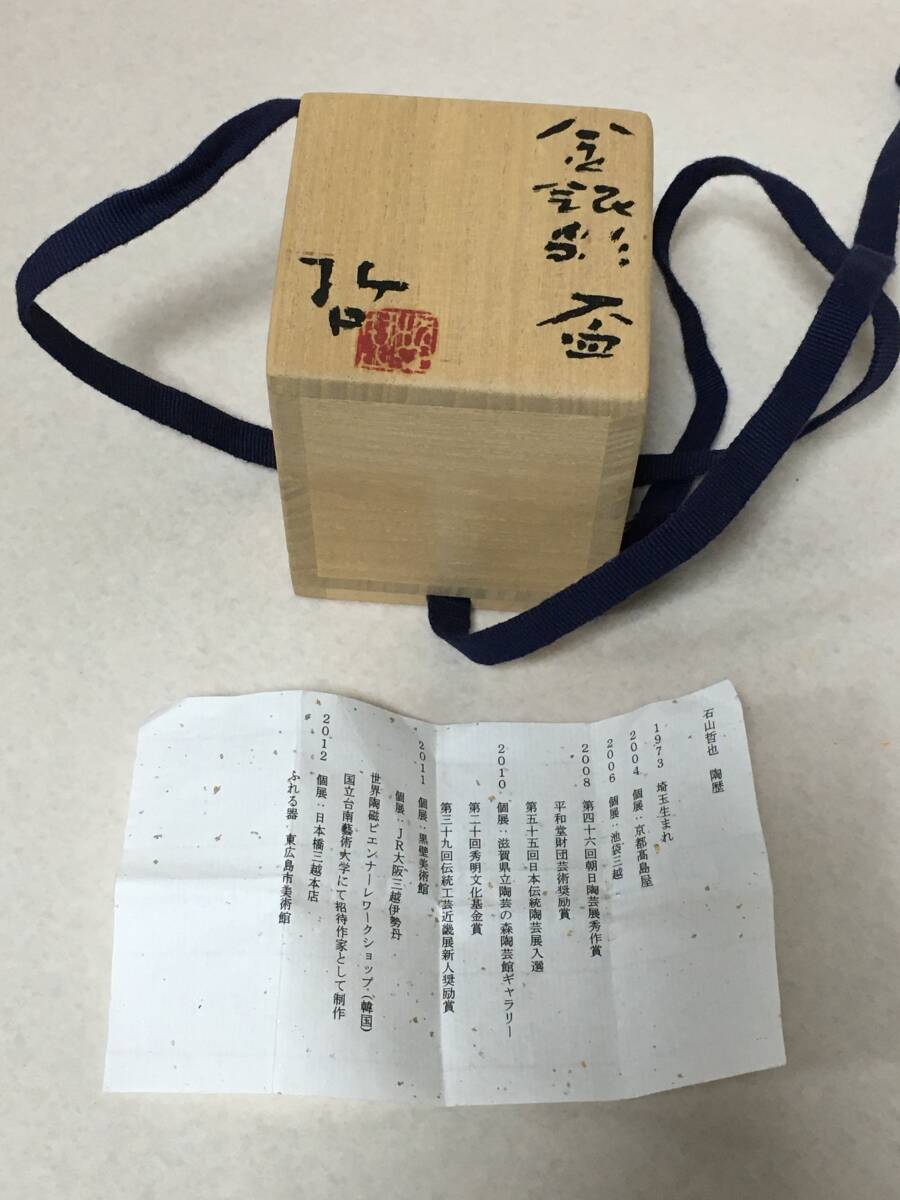 金銀彩 盃
哲
石山哲也 陶歴
1973 埼玉生まれ
2004 個展:京都髙島屋
2006 個展:池袋三越
2008 第四十六回朝日陶芸展秀作賞
平和堂財団芸術奨励賞
第五十五回日本伝統陶芸展入選
2010 個展:滋賀県立陶芸の森陶芸館ギャラリー
第二十回秀明文化基金賞
第三十九回伝統工芸近畿展新人奨励賞
2011 個展:黒壁美術館
個展:JR大阪三越伊勢丹
世界陶磁ビエンナーレワークショップ(韓国)
国立台南藝術大学にて招待作家として制作
2012 個展:日本橋三越本店
ふれる器:東広島市美術館